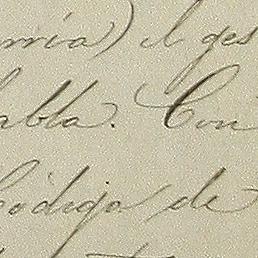 rria) el ges
abla. Con
Código de